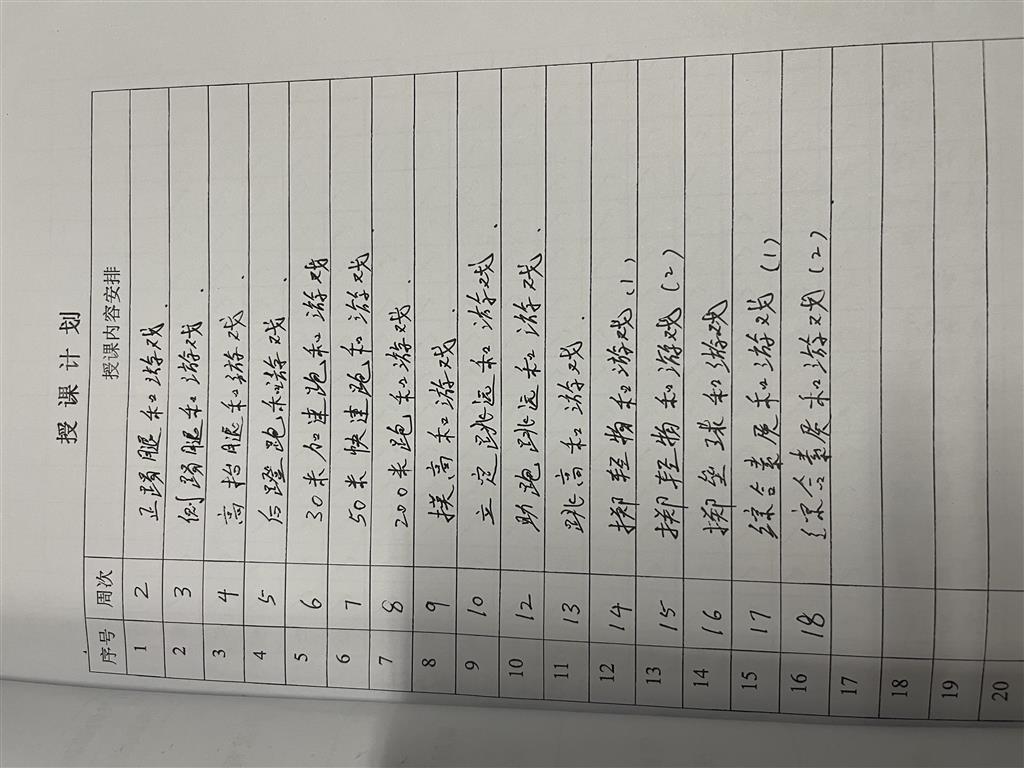 授课计划
序号 周次 授课内容安排
1 2 正踢腿和游戏.
2 3 侧踢腿和游戏.
3 4 高抬腿和游戏.
4 5 后蹬跑和游戏.
5 6 30米加速跑和游戏
6 7 50米快速跑和游戏
7 8 200米跑和游戏.
8 9 摸高和游戏.
9 10 立定跳远和游戏.
10 12 助跑跳远和游戏.
11 13 跳高和游戏.
12 14 掷轻物和游戏(1)
13 15 掷轻物和游戏(2)
14 16 掷垒球和游戏
15 17 综合素质和游戏(1)
16 18 综合素质和游戏(2)
17
18
19
20